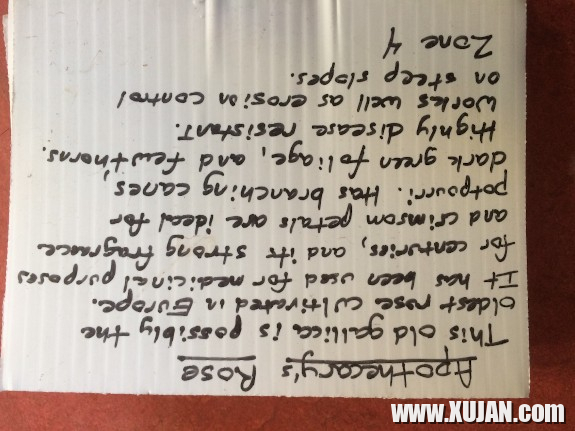 Apothecary's Rose
This old gallica is possibly the
oldest rose cultivated in Europe.
It has been used for medicinal purposes
for centuries, and its strong fragrance
and crimsom petals are ideal for
potpourri. Has branching canes,
dark green foliage, and few thorns.
Highly disease resistant.
Works well as erosion control
on steep slopes.
Zone 4
www.XUJAN.com